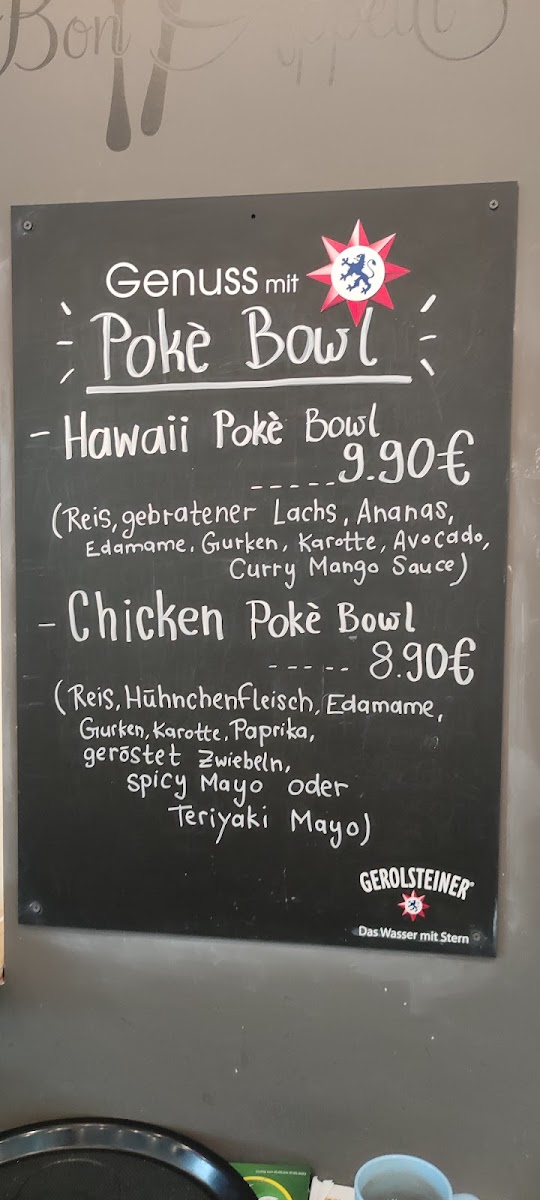 Bon Appetit
Genuss mit
Pokè Bowl
- Hawaii Pokè Bowl
-----9.90€
(Reis, gebratener Lachs, Ananas,
Edamame, Gurken, Karotte, Avocado,
Curry Mango Sauce)
- Chicken Pokè Bowl
----- 8.90€
(Reis, Hühnchenfleisch, Edamame,
Gurken, Karotte, Paprika,
geröstet Zwiebeln,
spicy Mayo oder
Teriyaki Mayo)
GEROLSTEINER
Das Wasser mit Stern